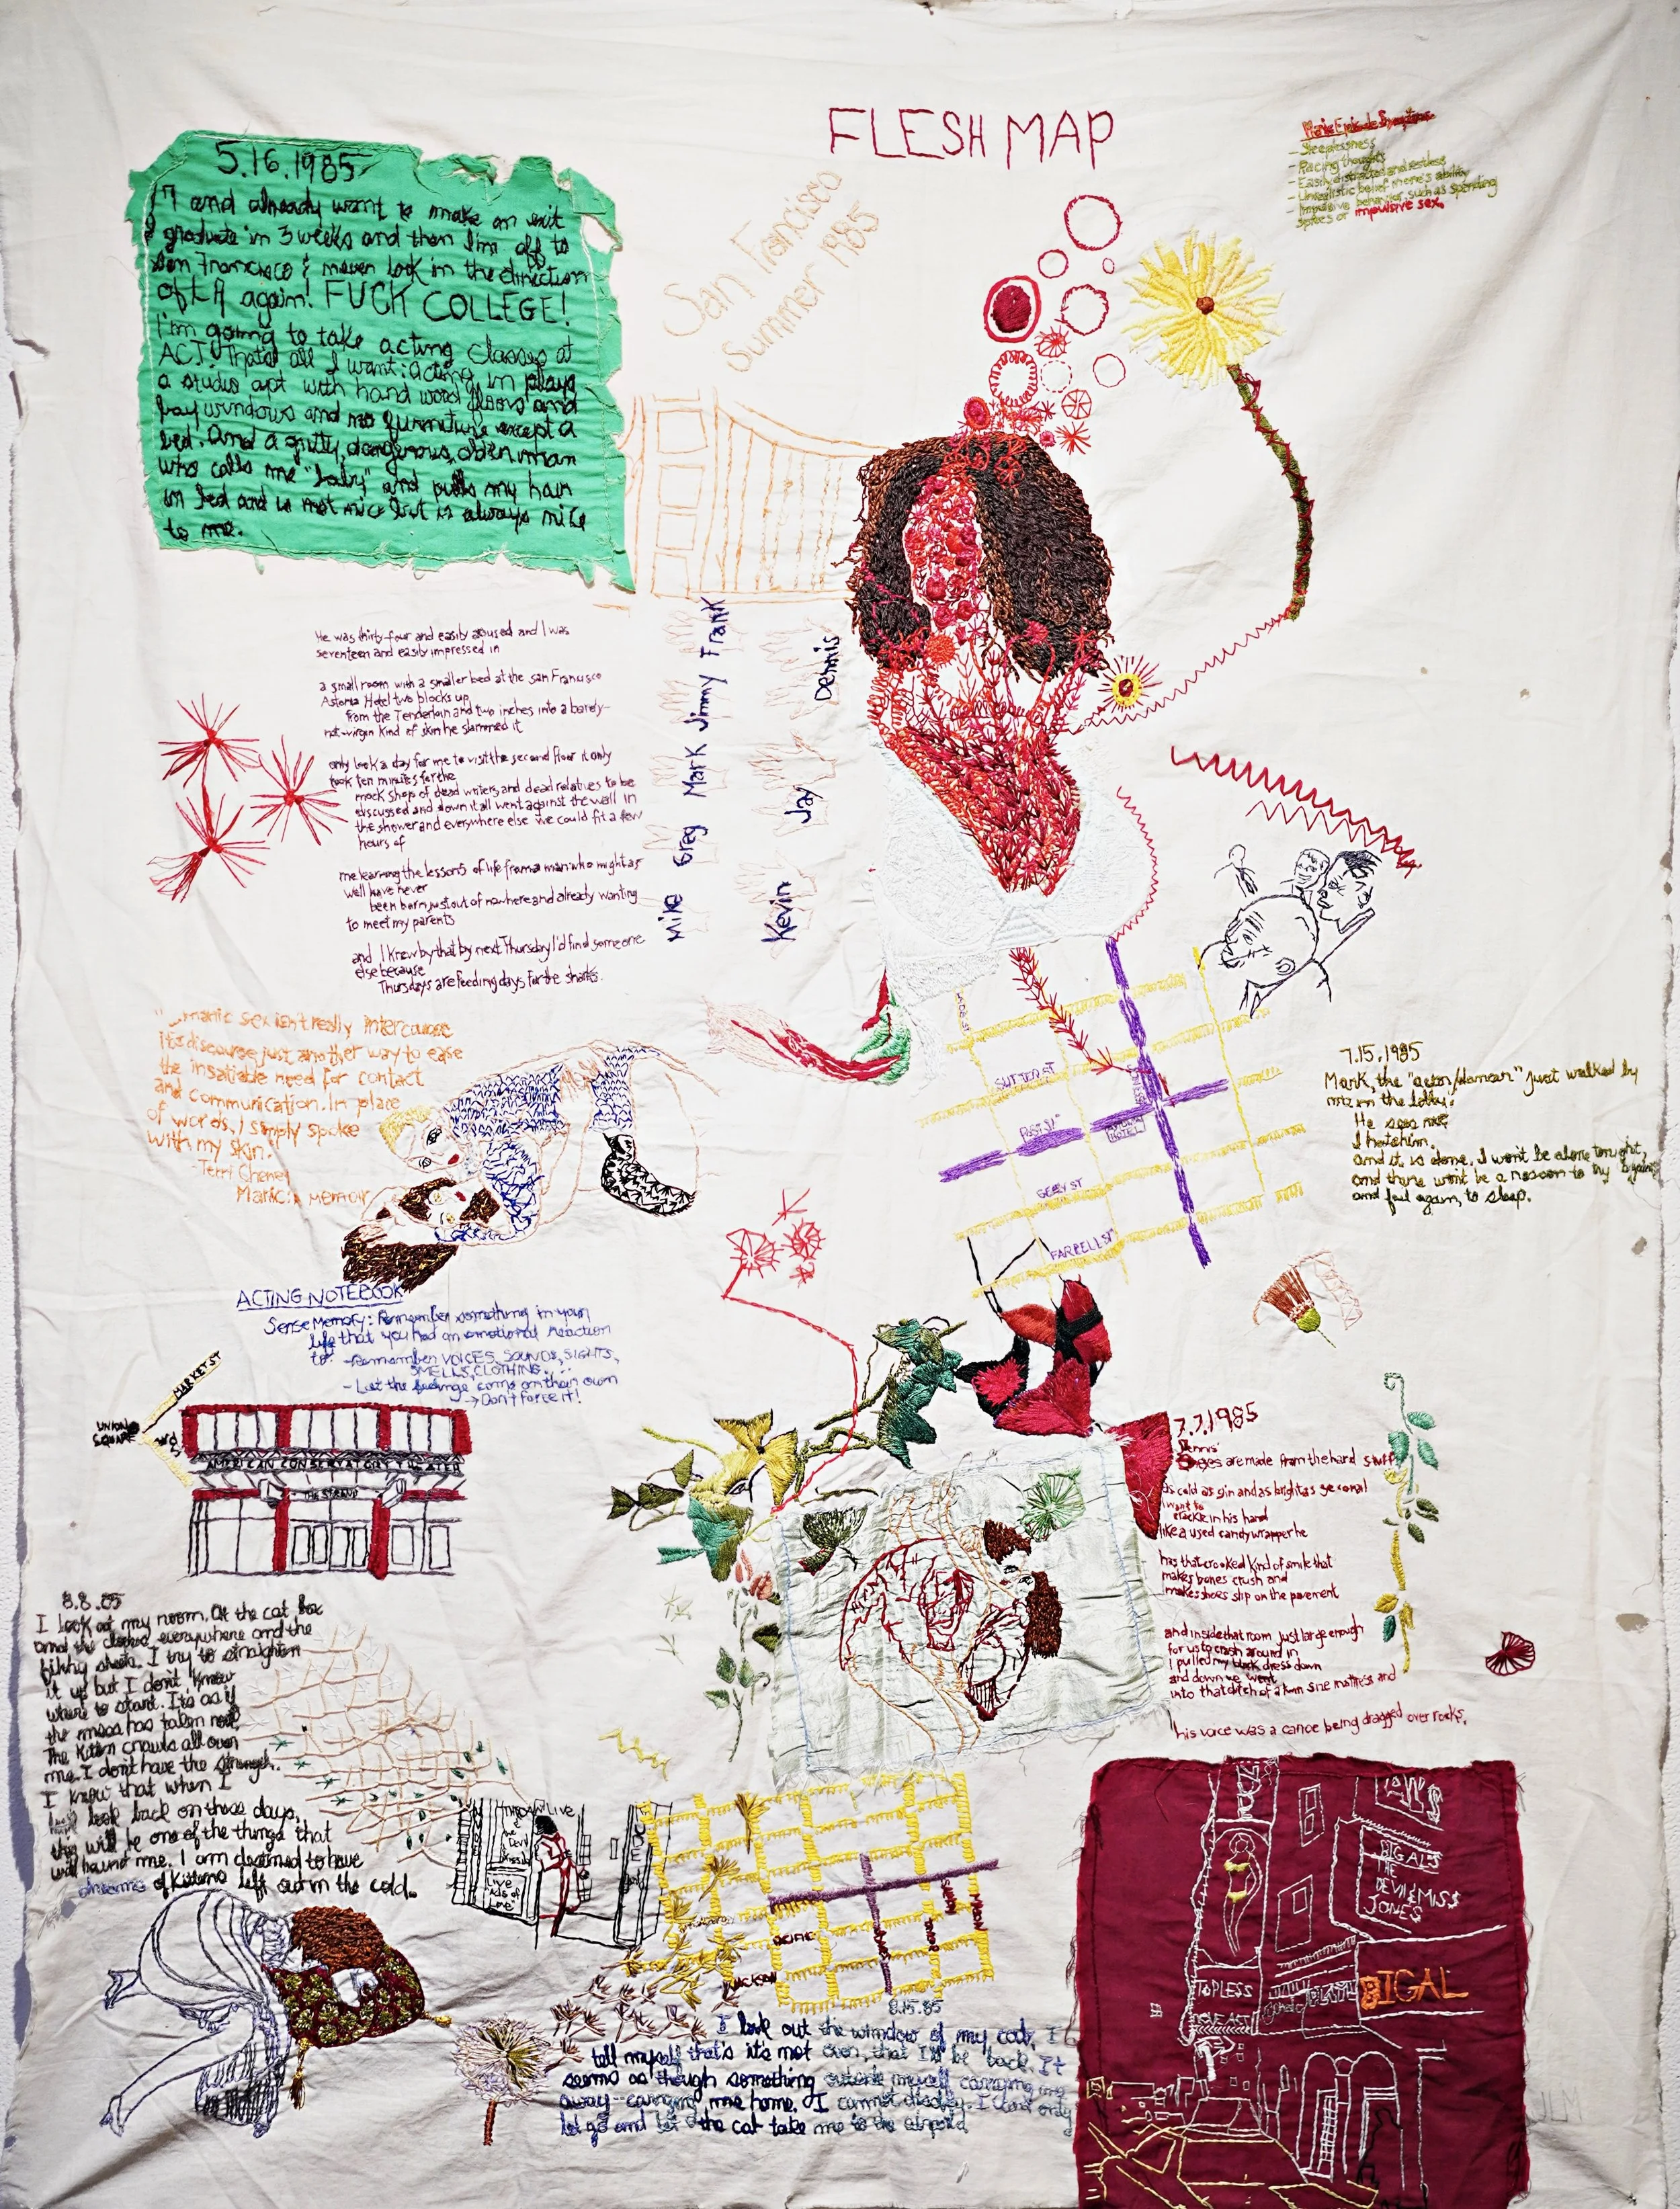 FLESH MAP
San Francisco
Summer 1985
Manic Episode Symptoms
- Sleeplessness
- Racing thoughts
- Easily distracted and restless
- Unrealistic belief in one's ability
- Impulsive behavior, such as spending
sprees or impulsive sex.
5.16.1985
17 and already want to make an exit
graduate in 3 weeks and then I'm off to
San Francisco & never look in the direction
of LA again! FUCK COLLEGE!
I'm going to take acting classes at
ACT! That's all I want: acting in plays
a studio apt with hard wood floors and
bay windows and no furniture except a
bed. And a gritty, dangerous, older man
who calls me "baby" and pulls my hair
in bed and is not nice but is always nice
to me.
He was thirty-four and easily aroused and I was
seventeen and easily impressed in
a small room with a smaller bed at the San Francisco
Astoria Hotel two blocks up
from the Tenderloin and two inches into a barely-
not-virgin kind of skin he slammed it
only took a day for me to visit the second floor it only
took ten minutes for the
mock shops of dead writers and dead relatives to be
discussed and down it all went against the wall in
the shower and everywhere else we could fit a few
hours of
me learning the lessons of life from a man who might as
well have never
been born just out of nowhere and already wanting
to meet my parents
and I knew by that by next Thursday I'd find someone
else because
Thursdays are feeding days for the sharks.
Frank
Jimmy
Mark
Greg
Mike
Dennis
Jay
Kevin
manic sex isn't really intercourse
its discourse, just another way to ease
the insatiable need for contact
and communication. In place
of words, I simply spoke
with my skin."
- Terri Cheney
Manic: A memoir
SUTTER ST
POST ST
HOTEL
GEARY ST
FARRELL ST
7.15.1985
Mark, the "actor/dancer" just walked by
me in the lobby.
He sees me
I hate him.
and it is done. I won't be alone tonight,
and there won't be a reason to try again
and fail again, to sleep.
ACTING NOTEBOOK
Sense Memory: Remember something in your
life that you had an emotional reaction
to: - Remember VOICES, SOUNDS, SIGHTS,
SMELLS, CLOTHING...
- Let the feelings come on their own
→ Don't force it!
MARKET ST
UNION
SQUARE
3rd St
AMERICAN CONSERVATORY THEATER
THE STRAND
7.7.1985
Dennis'
eyes are made from the hard stuff
as cold as gin and as bright as seconal
I want to
crackle in his hand
like a used candy wrapper he
has that crooked kind of smile that
makes bones crush and
makes shoes slip on the pavement
and inside that room just large enough
for us to crash around in
I pulled my black dress down
and down we went
into that ditch of a twin size mattress and
his voice was a canoe being dragged over rocks.
8.8.85
I look at my room. At the cat box
and the clothes everywhere and the
filthy sheets. I try to straighten
it up but I don't know
where to start. It's as if
the mess has taken root.
The kitten crawls all over
me. I don't have the strength.
I know that when I
look back on these days,
this will be one of the things that
will haunt me. I am doomed to have
dreams of kittens left out in the cold.
LIVE
the
Devil
Miss
Live
Acts of
Love
PACIFIC
JACKSON
8.15.85
I look out the window of my cab, I
tell myself that's it's not over, that I'll be back. It
seems as though something outside myself carrying me
away--carrying me home. I cannot disobey. I can only
let go and let the cat take me to the airport.
AL'S
BIG AL'S
THE
DEVIL & MISS
JONES
TOPLESS
LOVE ACT
BIGAL
JLM